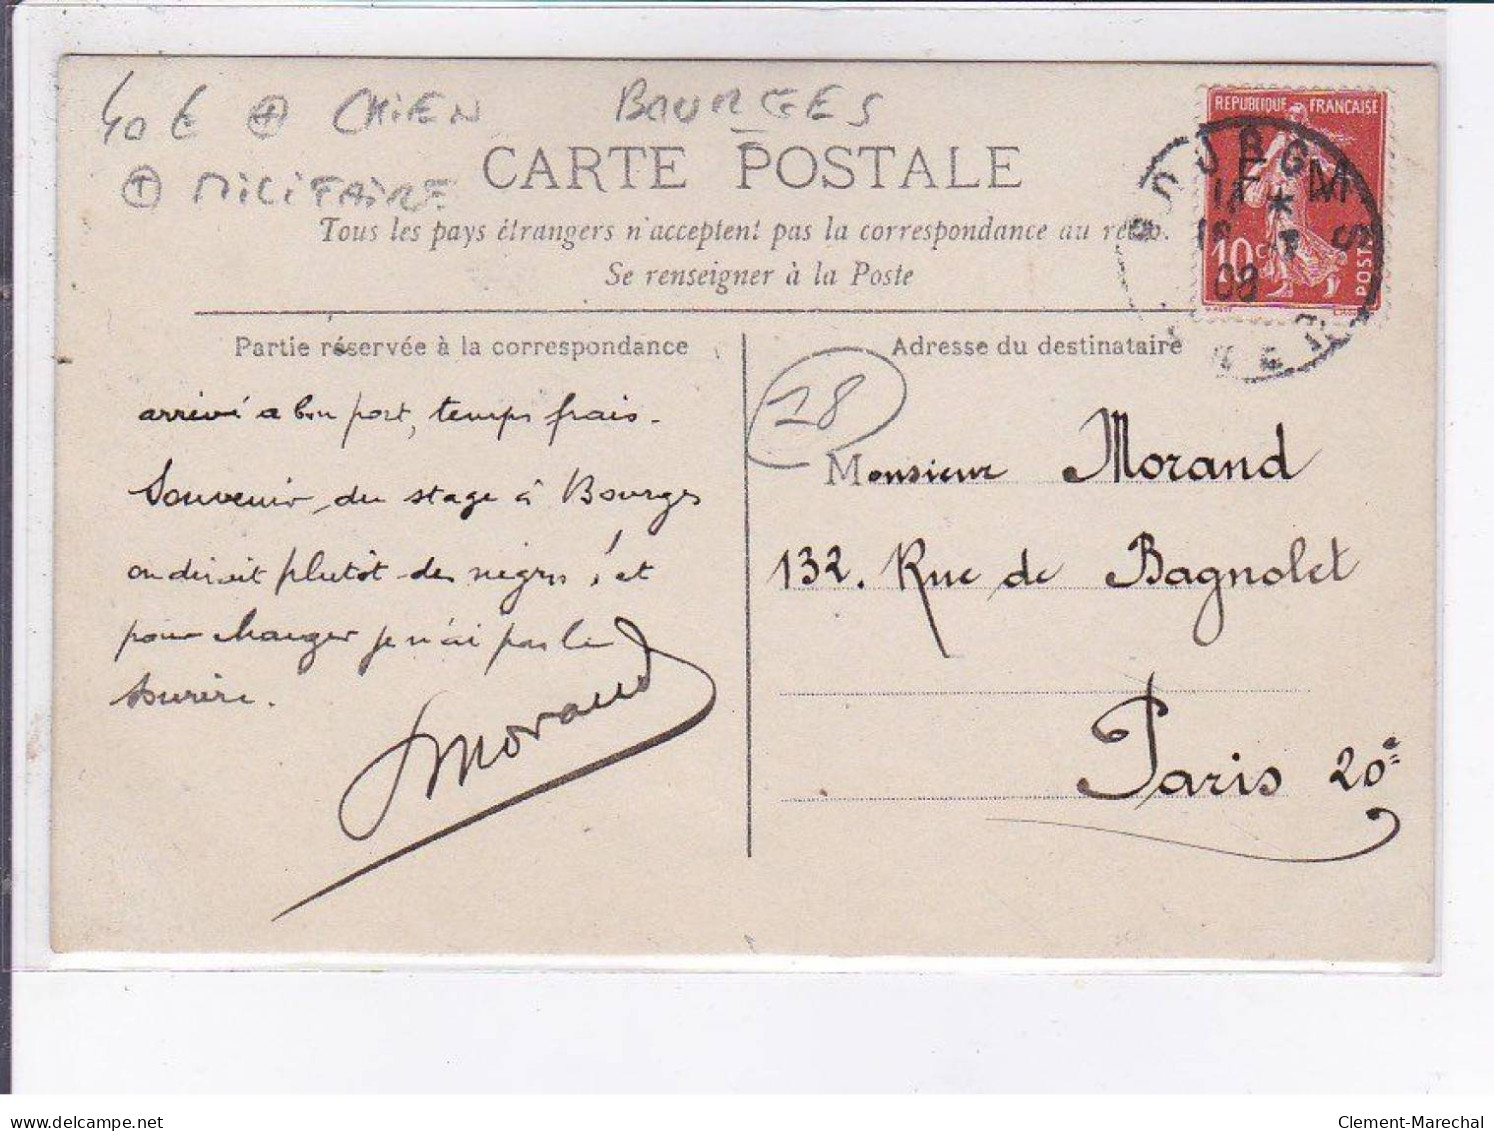 40 € + CHIEN BOURGES
+ MILITAIRE
CARTE POSTALE
Tous les pays étrangers n'acceptent pas la correspondance au recto.
Se renseigner à la Poste
REPUBLIQUE FRANÇAISE
10c POSTES
F M
BOURGES
08
Partie réservée à la correspondance
Adresse du destinataire
28
arrivé a bon port, temps frais.
Souvenir du stage à Bourges
on dirait plutôt des nègres, et
pour changer je n'ai pas le
sourire.
Morand
Monsieur Morand
132. Rue de Bagnolet
Paris 20e
delcampe.net
Clement-Marechal